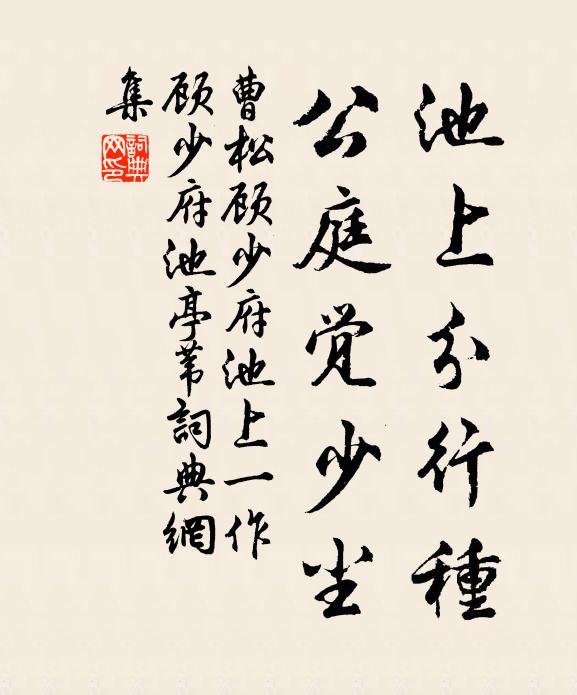 池上分行種
公庭觉少尘
曹松顾少府池上一作
顾少府池亭苇詞典網
集
詞典
网印